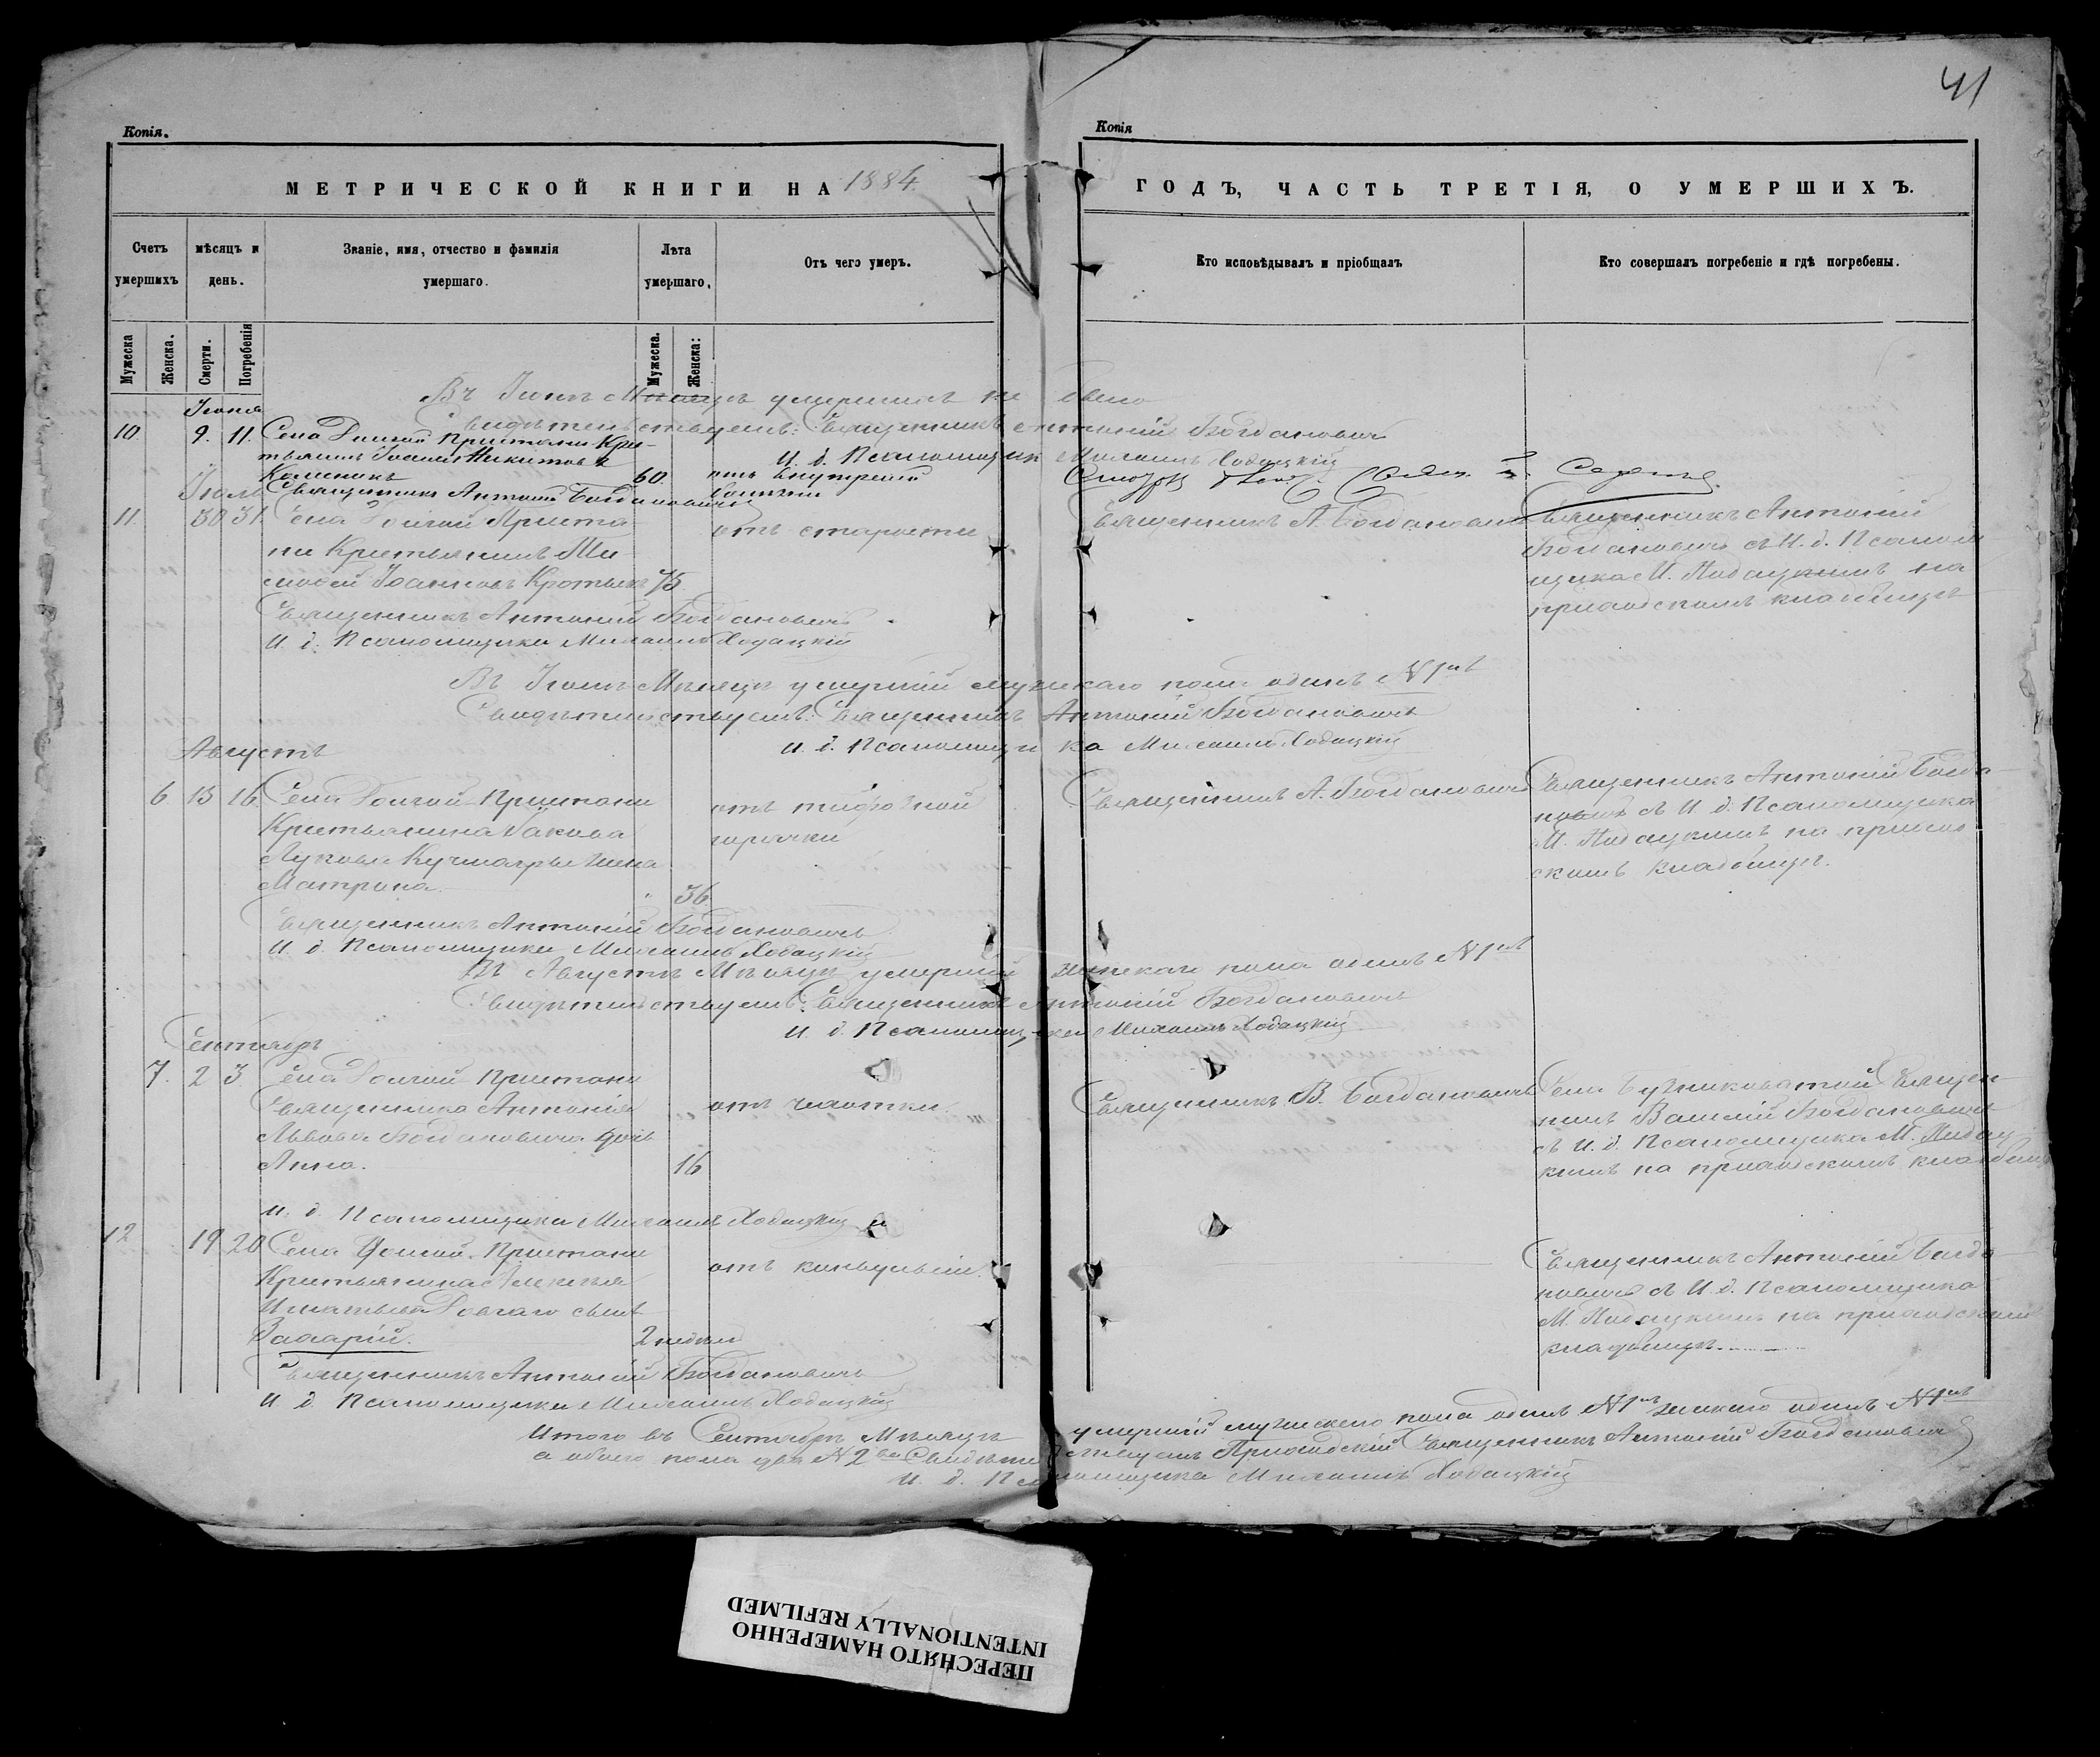 41
Копія.
Копія
МЕТРИЧЕСКОЙ КНИГИ НА 1884
ГОДЪ, ЧАСТЬ ТРЕТІЯ, О УМЕРШИХЪ.
Счетъ умершихъ
мѣсяцъ и день.
Званіе, имя, отчество и фамилія умершаго.
Лѣта умершаго.
Отъ чего умеръ.
Кто исповѣдывалъ и пріобщалъ
Кто совершалъ погребеніе и гдѣ погребены.
Мужеска
Женска.
Смерти.
Погребенія
Мужеска.
Женска:
Въ Іюнѣ Мѣсяцѣ умершихъ не было
Свидѣтельствуемъ: Священникъ Антоній Богдановичъ
И. д. Псаломщика Михаилъ Ходацкій
Іюня
10. 9. 11. Села Долгой Пристани Кре-
стьянинъ Іоаннъ Никитовъ
60. отъ внутреней
Священникъ Антоній Богдановичъ
Іюль
11. 30 31. Села Долгой Приста-
ни Крестьянинъ Ти-
мофей Іоанновъ 75
отъ старости
Священникъ А. Богдановичъ
Священникъ Антоній
Богдановичъ съ И. д. Псалом
щика М. Ходацкимъ на
приходскомъ кладбищѣ
Священникъ Антоній Богдановичъ
И. д. Псаломщика Михаилъ Ходацкій
Въ Іюлѣ Мѣсяцѣ умершій мужскаго пола одинъ №1нъ
Свидѣтельствуемъ: Священникъ Антоній Богдановичъ
И. д. Псаломщика Михаилъ Ходацкій
Августъ
6. 15 16 Села Долгой Пристани
Крестьянина Іакова
Лукова жена
Матрона. 36.
отъ тифозной
горячки
Священникъ А. Богдановичъ
Священникъ Антоній Богда-
новичъ съ И. д. Псаломщика
М. Ходацкимъ на приход-
скомъ кладбищѣ.
Священникъ Антоній Богдановичъ
И. д. Псаломщика Михаилъ Ходацкій
Въ Августѣ Мѣсяцѣ умершій женскаго пола одинъ №1нъ
Свидѣтельствуемъ: Священникъ Антоній Богдановичъ
И. д. Псаломщика Михаилъ Ходацкій
Сентябрь
7. 2 3 Села Долгой Пристани
Священника Антонія
Львова Богдановича дочь
Анна. 16
отъ чахотки.
Священникъ В. Богдановичъ
Села Священ-
никъ Василій Богдановичъ
съ И. д. Псаломщика М. Ходац
кимъ на приходскомъ кладбищѣ
И. д. Псаломщика Михаилъ Ходацкій
12 19 20 Села Долгой Пристани
Крестьянина Алексѣя
Игнатьева Довгаго сынъ
Захарій. 2 недѣли
отъ конвульсіи.
Священникъ Антоній Богда-
новичъ съ И. д. Псаломщика
М. Ходацкимъ на приходскомъ
кладбищѣ.
Священникъ Антоній Богдановичъ
И. д. Псаломщика Михаилъ Ходацкій
Итого въ Сентябрѣ Мѣсяцѣ умершій мужескаго пола одинъ №1нъ женскаго одинъ №1нъ
а обоего пола два №2ва Свидѣтельствуемъ Приходскій Священникъ Антоній Богдановичъ
И. д. Псаломщика Михаилъ Ходацкій
ПЕРЕСНЯТО НАМЕРЕННО
INTENTIONALLY REFILMED